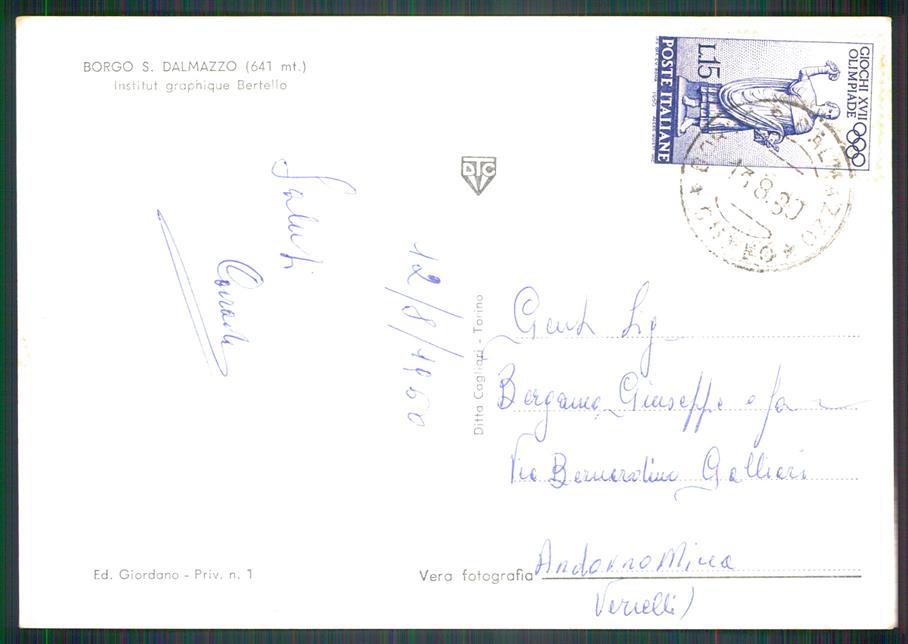 BORGO S. DALMAZZO (641 mt.)
Institut graphique Bertello
GIOCHI XVII
OLIMPIADE
L.15
POSTE ITALIANE
DTC
13.8.60
Saluti
Corrado
12/8/1960
Ditta Cagliari - Torino
Gent. Sig
Bergamo Giuseppe e fam
Via Bernardino Galliari
Andorno Micca
Vercelli)
Ed. Giordano - Priv. n. 1
Vera fotografia